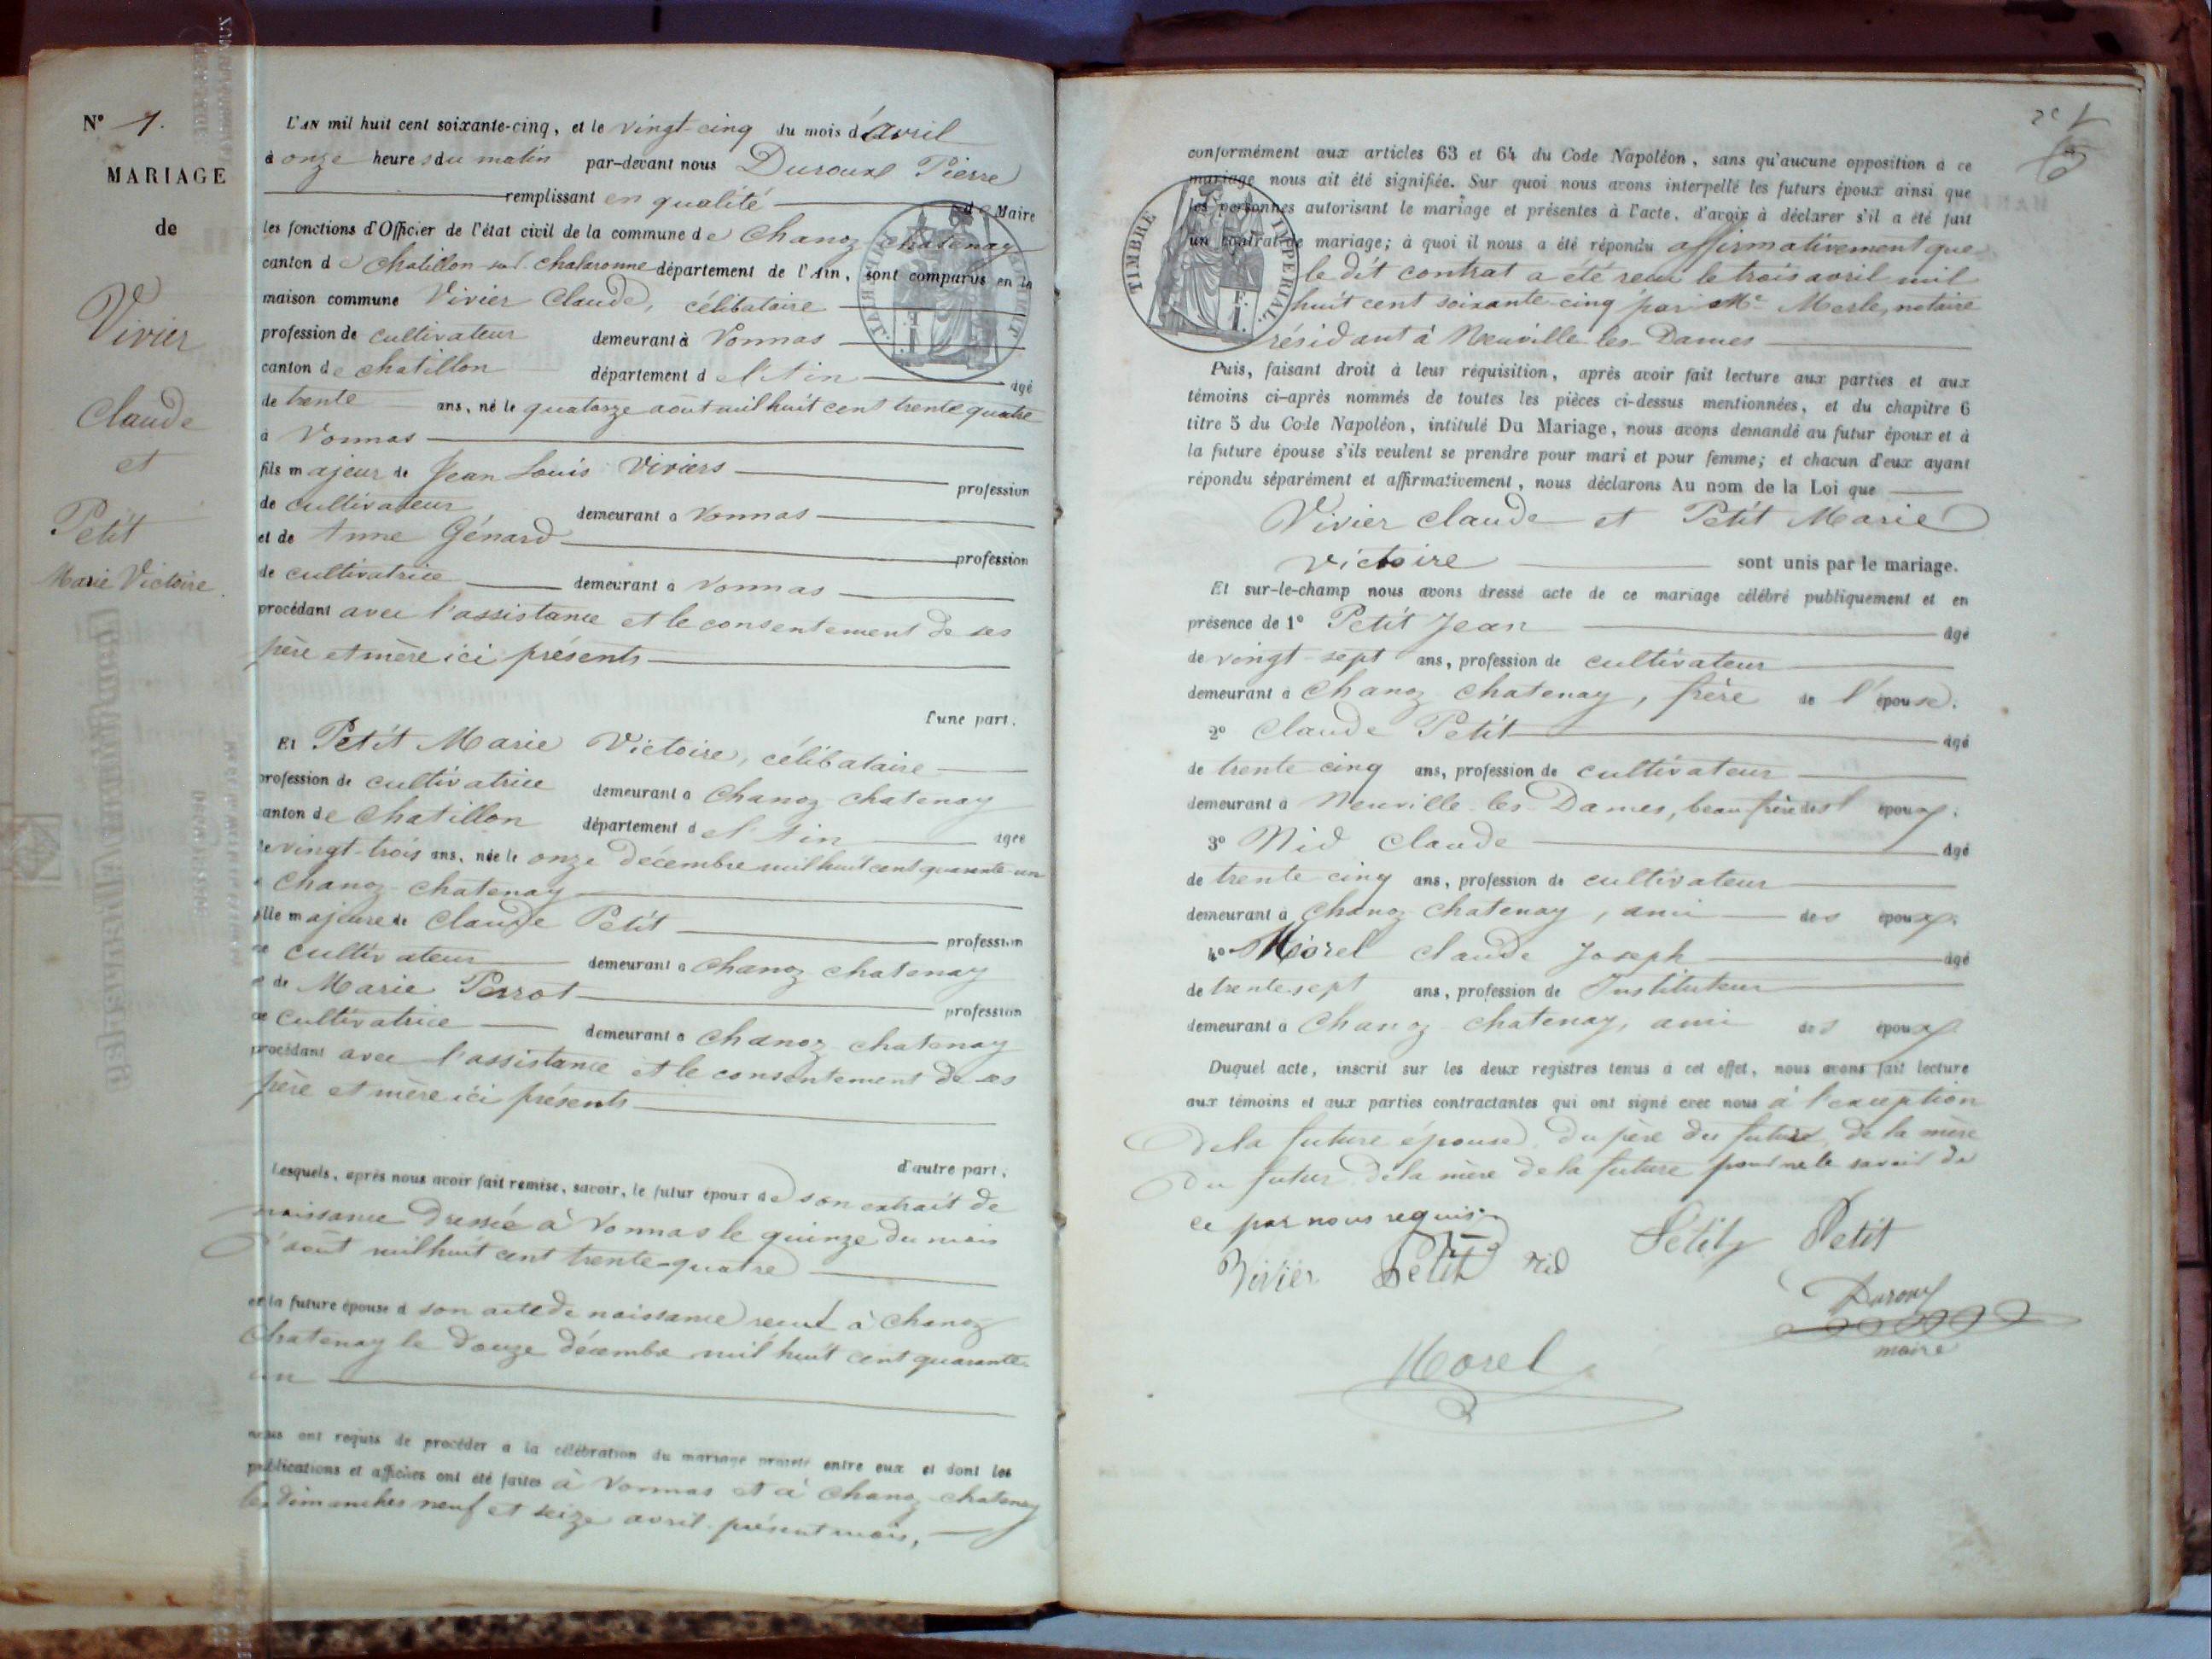 N° 7.
MARIAGE
de
Vivier
Claude
et
Petit
Marie Victoire.
L'AN mil huit cent soixante-cinq, et le vingt-cinq du mois d'avril
à onze heures du matin par-devant nous Duroux Pierre
remplissant en qualité de Maire
les fonctions d'Officier de l'état civil de la commune de Chanoz Chatenay
canton de Chatillon sur Chalaronne département de l'Ain, sont comparus en la
maison commune Vivier Claude, célibataire
profession de cultivateur demeurant à Vonnas
canton de Chatillon département de l'Ain âgé
de trente ans, né le quatorze août mil huit cent trente quatre
à Vonnas
fils majeur de Jean Louis Viviers profession
de cultivateur demeurant à Vonnas
et de Anne Génard profession
de cultivatrice demeurant à Vonnas
procédant avec l'assistance et le consentement de ses
père et mère ici présents
l'une part.
Et Petit Marie Victoire, célibataire
profession de cultivatrice demeurant à Chanoz-Chatenay
canton de Chatillon département de l'Ain âgée
de vingt-trois ans, née le onze décembre mil huit cent quarante-un
à Chanoz-Chatenay
fille majeure de Claude Petit profession
de cultivateur demeurant à Chanoz Chatenay
et de Marie Perrot profession
de cultivatrice demeurant à Chanoz Chatenay
procédant avec l'assistance et le consentement de ses
père et mère ici présents
d'autre part.
Lesquels, après nous avoir fait remise, savoir, le futur époux de son extrait de
naissance dressé à Vonnas le quinze du mois
d'août mil huit cent trente-quatre
et la future épouse d son acte de naissance reçu à Chanoz
Chatenay le douze décembre mil huit cent quarante-
un
nous ont requis de procéder à la célébration du mariage projeté entre eux et dont les
publications et affiches ont été faites à Vonnas et à Chanoz-Chatenay
les dimanches neuf et seize avril présent mois,
conformément aux articles 63 et 64 du Code Napoléon, sans qu'aucune opposition à ce
mariage nous ait été signifiée. Sur quoi nous avons interpellé les futurs époux ainsi que
les personnes autorisant le mariage et présentes à l'acte, d'avoir à déclarer s'il a été fait
un contrat de mariage; à quoi il nous a été répondu affirmativement que
le dit contrat a été reçu le trois avril mil
huit cent soixante-cinq par Me Merle, notaire
résidant à Neuville les Dames
TIMBRE IMPERIAL.
Puis, faisant droit à leur réquisition, après avoir fait lecture aux parties et aux
témoins ci-après nommés de toutes les pièces ci-dessus mentionnées, et du chapitre 6
titre 5 du Code Napoléon, intitulé Du Mariage, nous avons demandé au futur époux et à
la future épouse s'ils veulent se prendre pour mari et pour femme; et chacun d'eux ayant
répondu séparément et affirmativement, nous déclarons Au nom de la Loi que
Vivier Claude et Petit Marie
Victoire sont unis par le mariage.
Et sur-le-champ nous avons dressé acte de ce mariage célébré publiquement et en
présence de 1° Petit Jean âgé
de vingt-sept ans, profession de cultivateur
demeurant à Chanoz Chatenay, frère de l'épouse.
2° Claude Petit âgé
de trente cinq ans, profession de cultivateur
demeurant à Neuville-les-Dames, beau frère des époux.
3° Nid Claude âgé
de trente cinq ans, profession de cultivateur
demeurant à Chanoz Chatenay, ami des époux.
4° Morel Claude Joseph âgé
de trente-sept ans, profession de Instituteur
demeurant à Chanoz-Chatenay, ami des époux
Duquel acte, inscrit sur les deux registres tenus à cet effet, nous avons fait lecture
aux témoins et aux parties contractantes qui ont signé avec nous à l'exception
De la future épouse, du père du futur, de la mère
du futur, de la mère de la future pour ne le savoir de
ce par nous requis.
Vivier Petit Nid Petit Petit
Duroux
maire
Morel